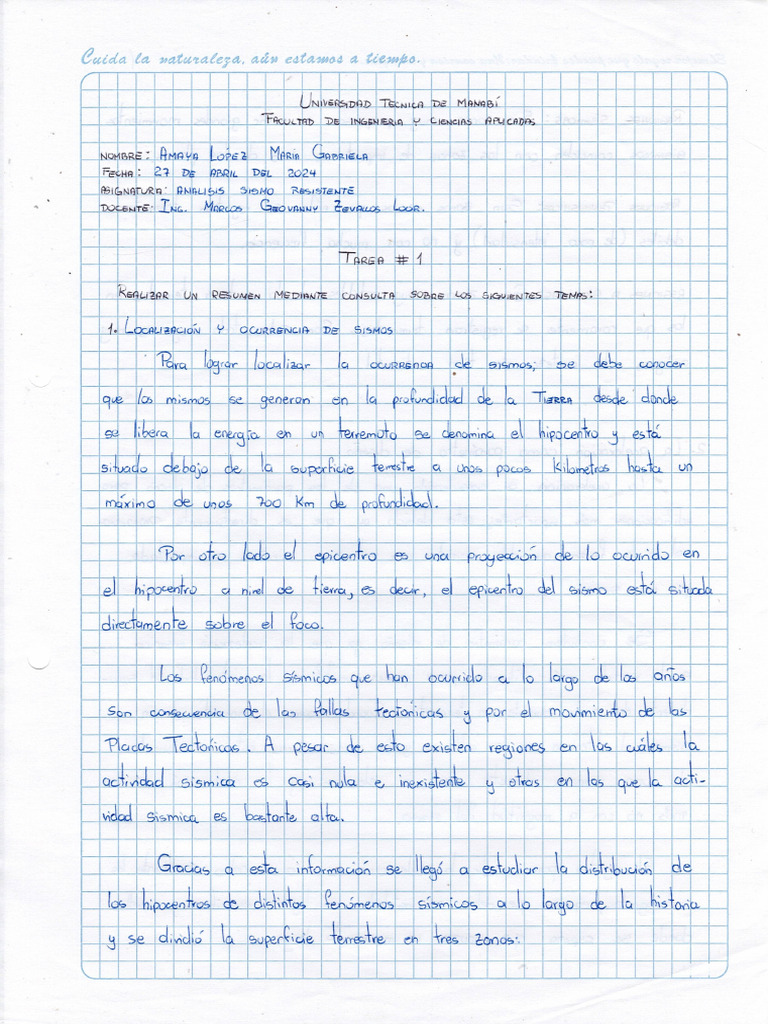 Cuida la naturaleza, aún estamos a tiempo.
UNIVERSIDAD TECNICA DE MANABÍ
FACULTAD DE INGENIERIA Y CIENCIAS APLICADAS
NOMBRE: AMAYA LOPEZ MARIA GABRIELA
FECHA: 27 DE ABRIL DEL 2024
ASIGNATURA: ANALISIS SISMO RESISTENTE
DOCENTE: ING. MARCOS GEOVANNY ZEVALLOS LOOR.
TAREA # 1
REALIZAR UN RESUMEN MEDIANTE CONSULTA SOBRE LOS SIGUIENTES TEMAS:
1. LOCALIZACIÓN Y OCURRENCIA DE SISMOS
Para lograr localizar la ocurrencia de sismos; se debe conocer
que los mismos se generan en la profundidad de la TIERRA desde donde
se libera la energía en un terremoto se denomina el hipocentro y está
situado debajo de la superficie terrestre a unos pocos Kilometros hasta un
máximo de unos 700 Km de profundidad.
Por otro lado el epicentro es una proyección de lo ocurrido en
el hipocentro a nivel de tierra, es decir, el epicentro del sismo está situada
directamente sobre el foco.
Los fenómenos sísmicos que han ocurrido a lo largo de los años
son consecuencia de las fallas tectónicas y por el movimiento de las
Placas Tectónicas. A pesar de esto existen regiones en las cuáles la
actividad sismica es casi nula e inexistente y otras en las que la acti-
vidad sismica es bastante alta.
Gracias a esta información se llegó a estudiar la distribución de
los hipocentros de distintos fenómenos sísmicos a lo largo de la historia
y se dividió la superficie terrestre en tres zonas: